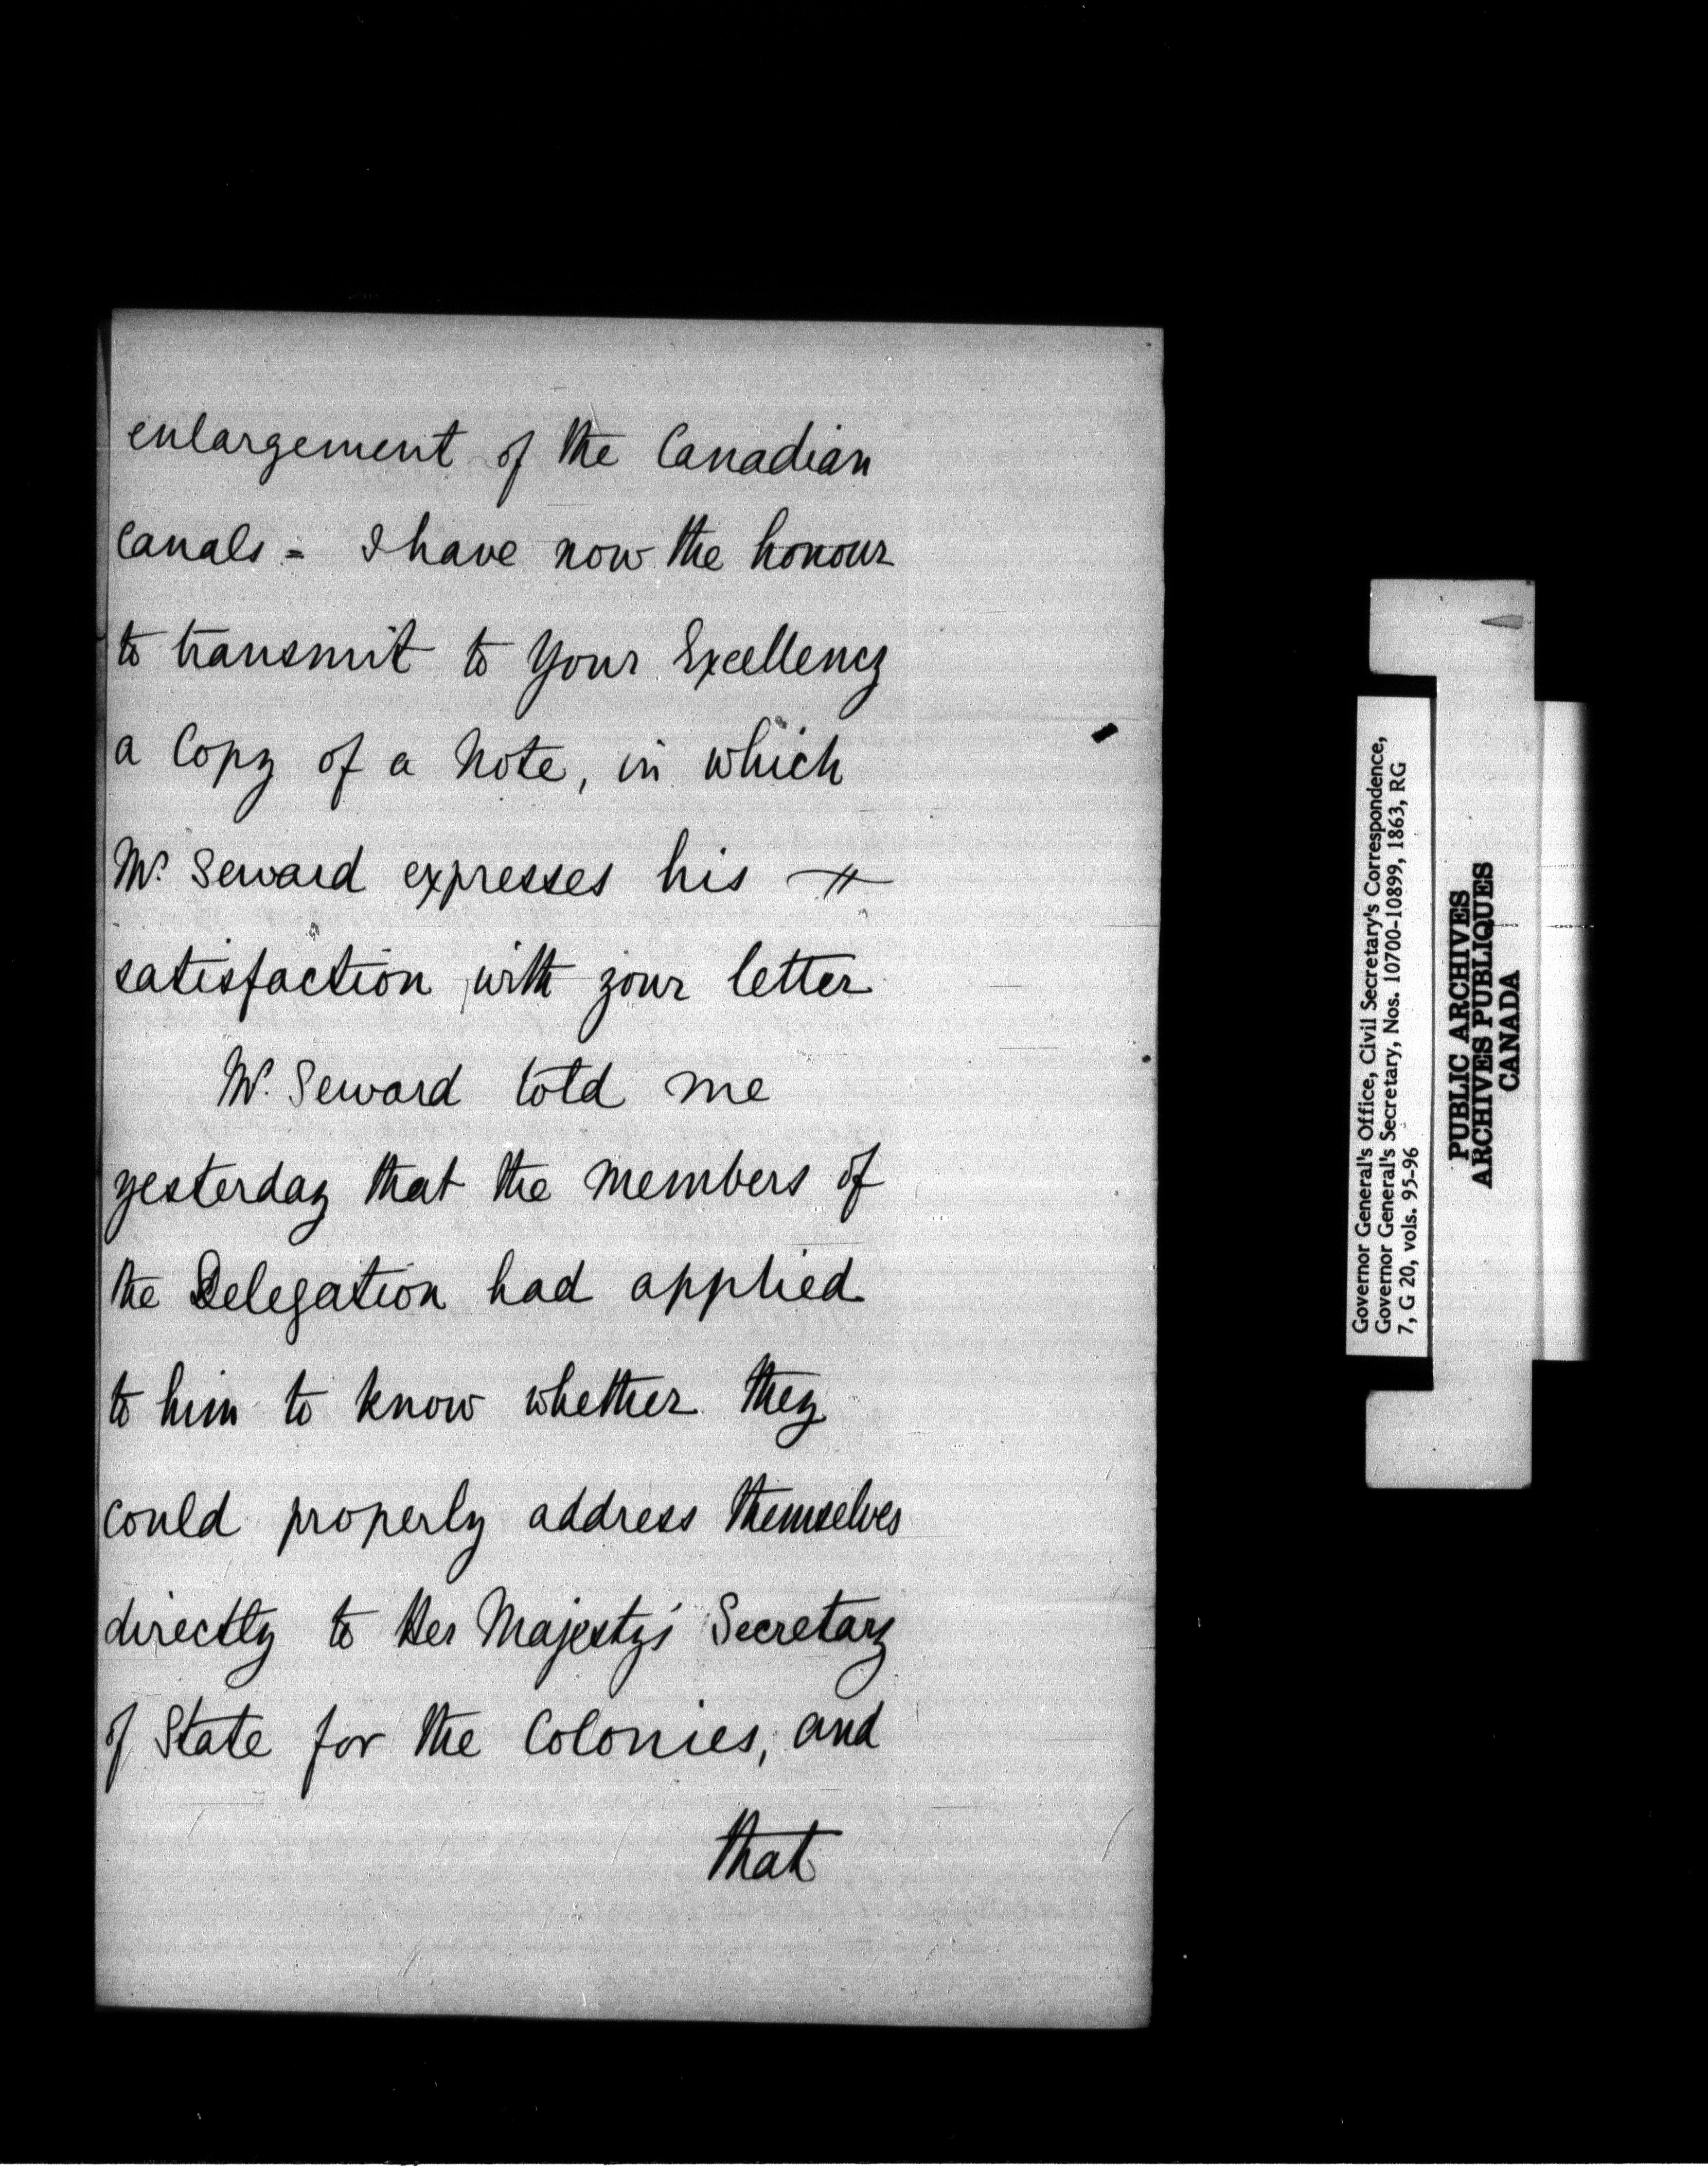 enlargement of the Canadian
Canals = I have now the honour
to transmit to Your Excellency
a Copy of a Note, in which
Mr. Seward expresses his
satisfaction with your letter
Mr. Seward told me
yesterday that the Members of
the Delegation had applied
to him to know whether they
could properly address themselves
directly to Her Majesty's Secretary
of State for the Colonies, and
that
Governor General's Office, Civil Secretary's Correspondence,
Governor General's Secretary, Nos. 10700-10899, 1863, RG
7, G 20, vols. 95-96
PUBLIC ARCHIVES
ARCHIVES PUBLIQUES
CANADA